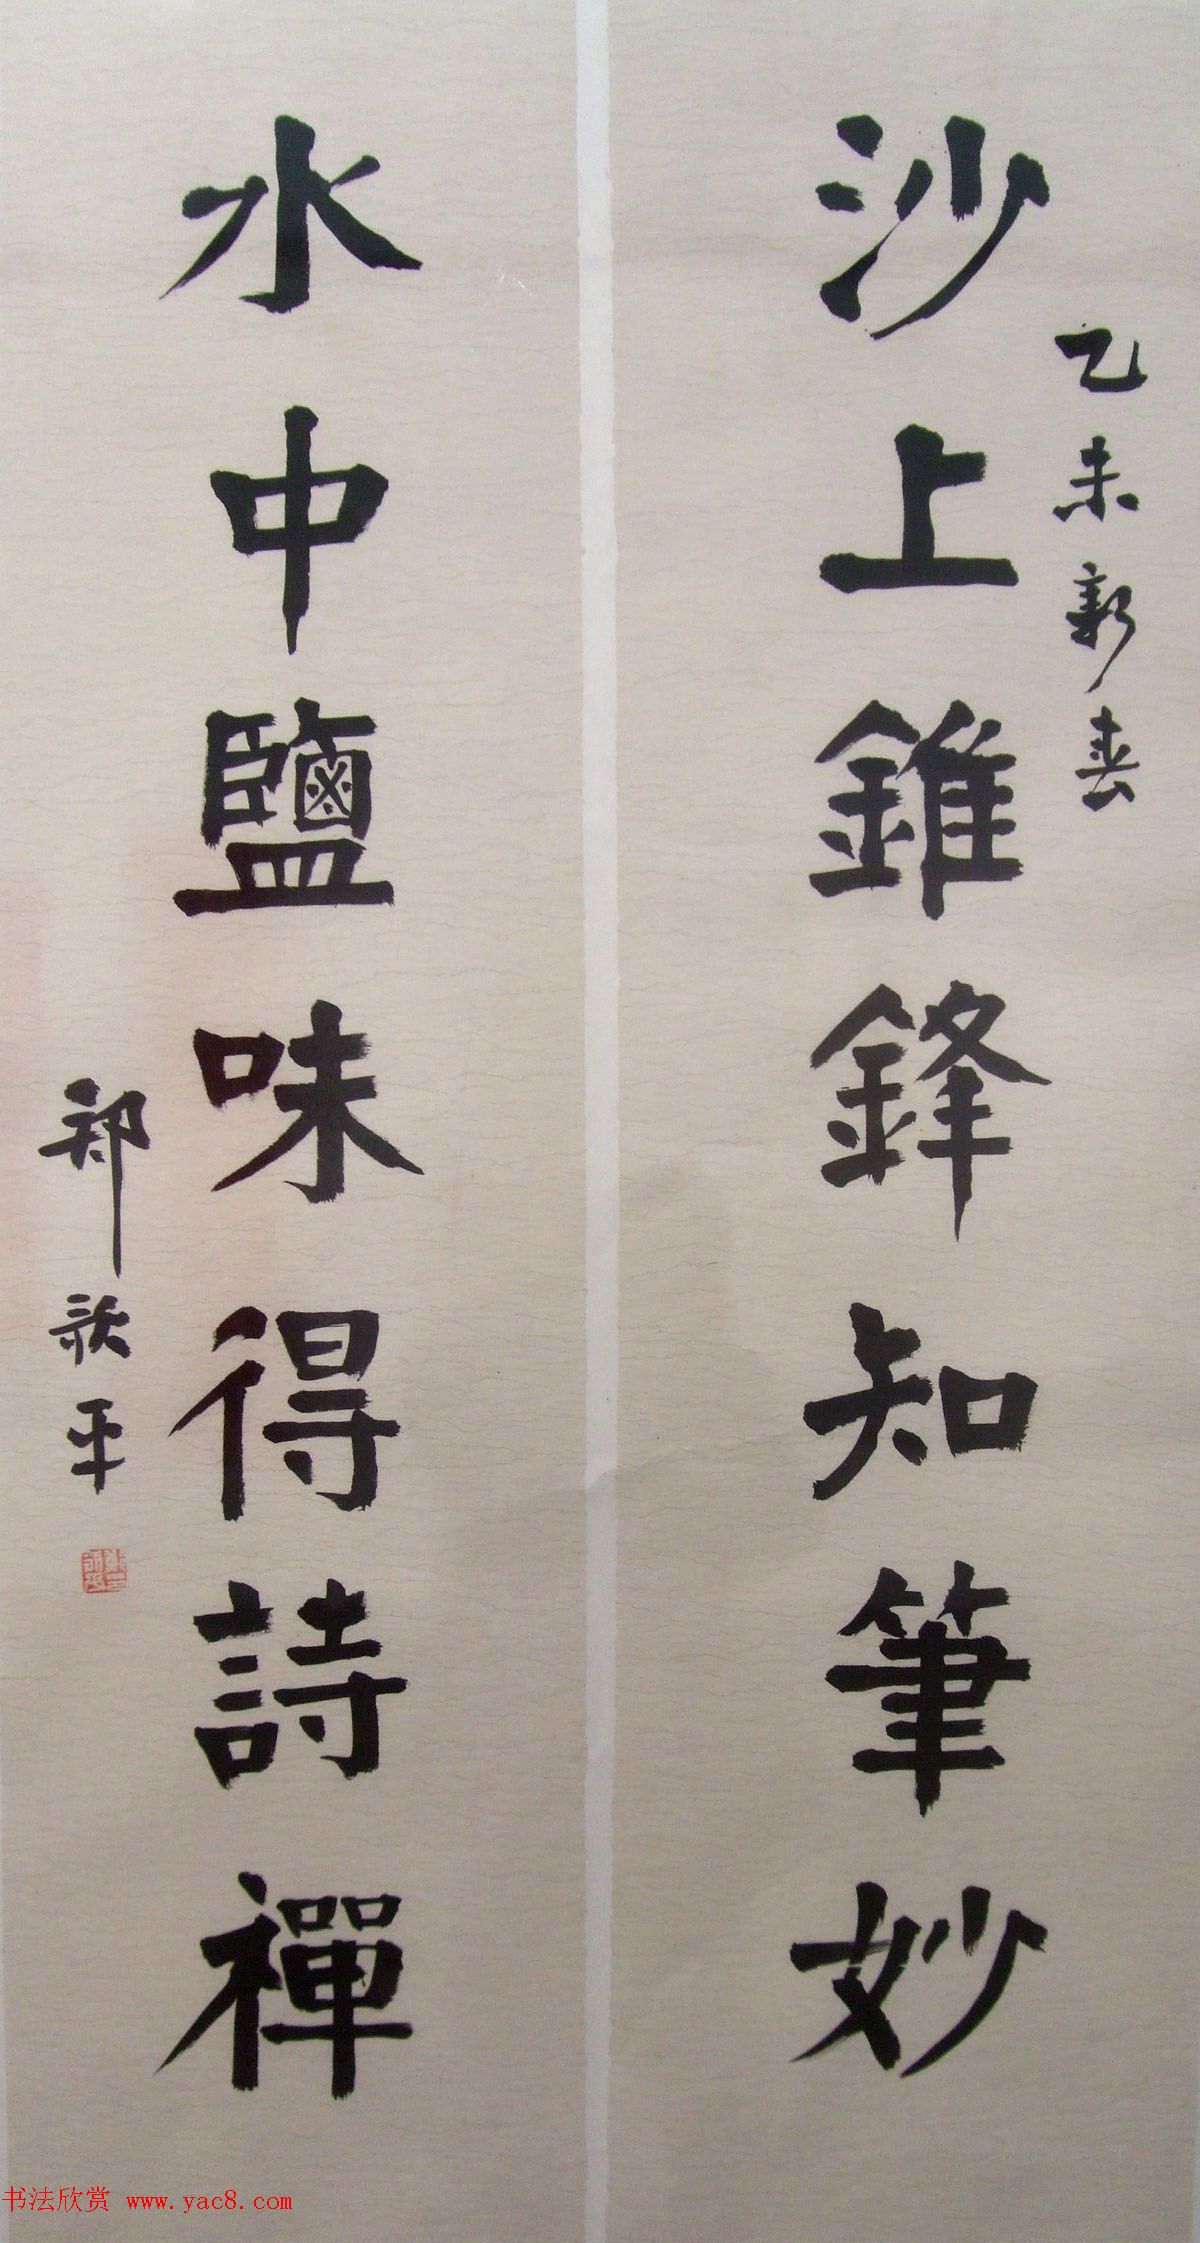 乙未新春
沙上錐鋒知筆妙
水中鹽味得詩禪
郑歌平
书法欣赏 www.yac8.com